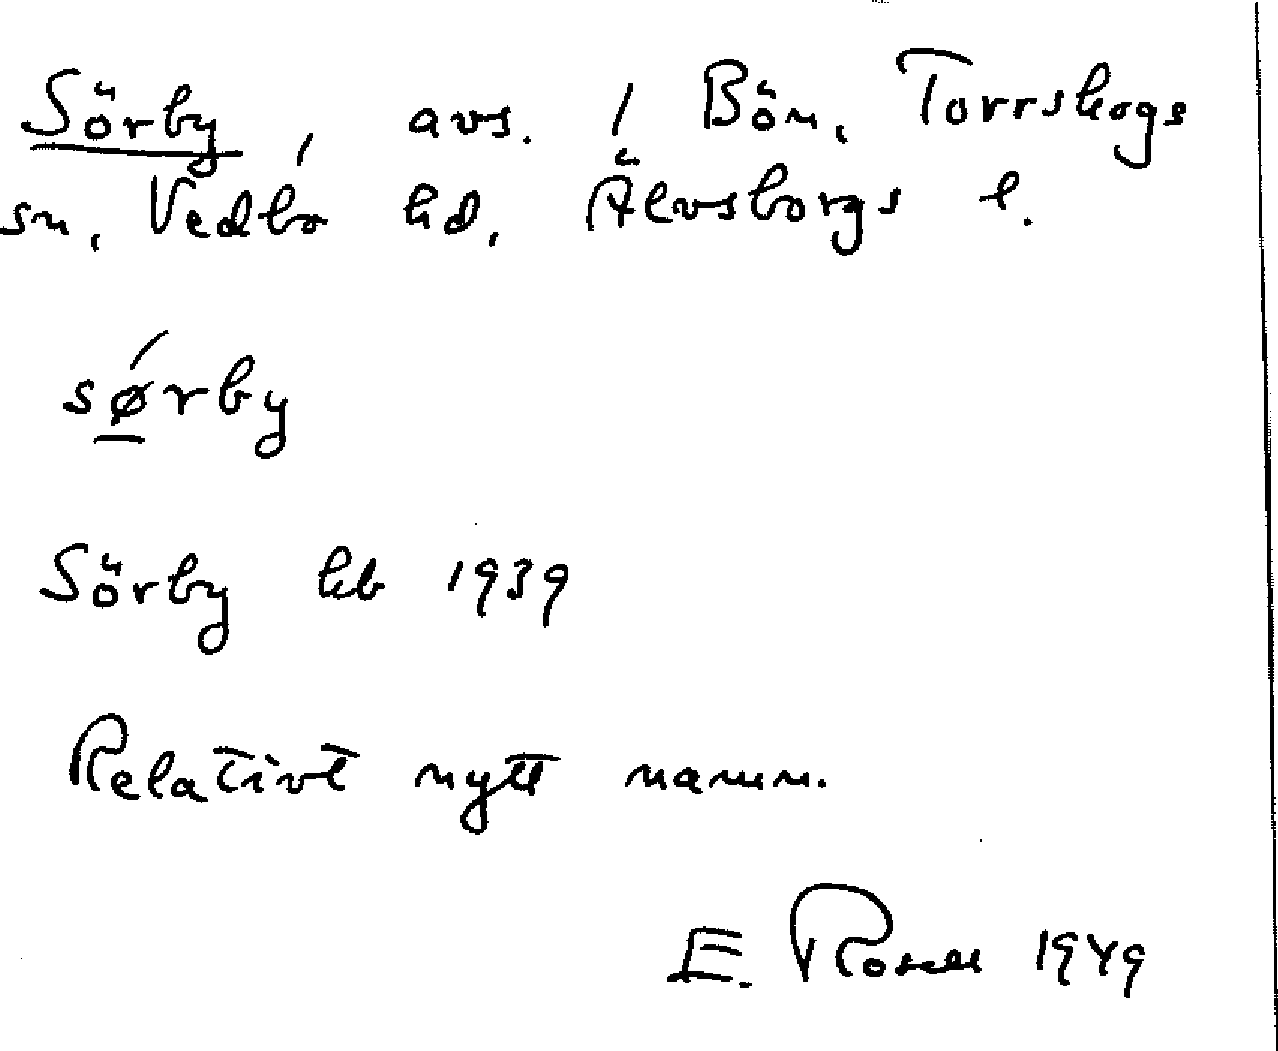 Sörby, avs. i Bön, Torrskogs
sn, Vedbo hd, Älvsborgs l.
sǿrby
Sörby kb 1939
Relativt nytt namn.
E. Rosell 1949